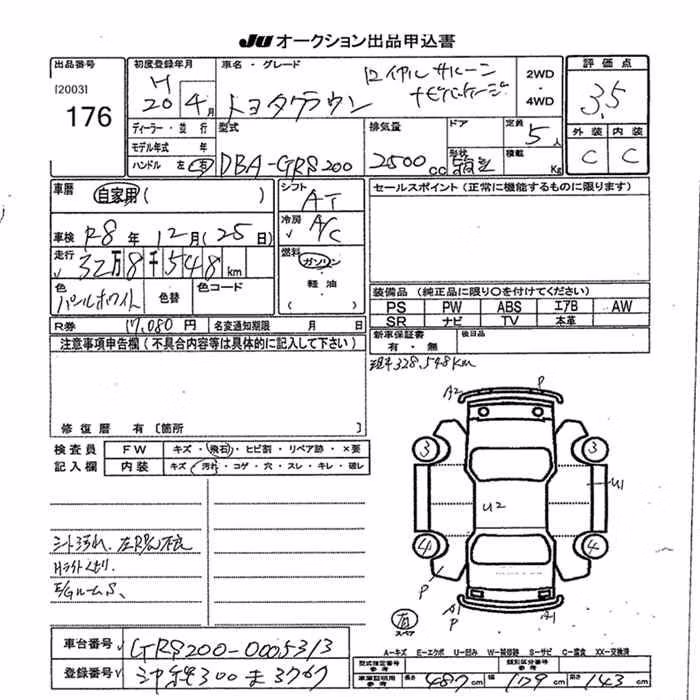 JU オークション出品申込書
出品番号
[2003]
176
初度登録年月
H
20年 4月
車名・グレード
トヨタクラウン
ロイヤルサルーン
ナビパッケージ
2WD
・
4WD
評価点
3.5
外装 内装
C C
ディーラー・並行
モデル年式 年
ハンドル 左 右
型式
DBA-GRS200
排気量
2500cc
ドア
形状
定員 5人
積載 Kg
車歴
自家用 ( )
シフト
AT
セールスポイント（正常に機能するものに限ります）
車検 R8年 12月（25日）
冷房
A/C
走行
32万8千548km
燃料
ガソリン
・
軽油
( )
色
パールホワイト
色替
色コード
装備品（純正品に限り○を付けてください）
PS PW ABS エアB AW
SR ナビ TV 本革
R券 17,080円 名変通知期限 月 日
新車保証書
有・無
後日品
注意事項申告欄（不具合内容等は具体的に記入して下さい）
328,548km
修復歴 有〔箇所
検査員
記入欄
FW キズ・飛石・ヒビ割・リペア跡・×要
内装 キズ・汚れ・コゲ・穴・スレ・キレ・破レ
A2 P
3 3
U1
U2
4 4
P
A1 A1
P
有
スペア
シート汚れ、左R P/W不良
Hライトくもり、
E/GルームS、
車台番号 GRS200-0005313
登録番号 300 ま 3767
A－キズ E－エクボ U－凹み W－補修跡 S－サビ C－腐食 XX－交換済
型式指定番号
参考
類別区分番号
参考
車庫証明用
参考
長さ 487cm 幅 179cm 高さ 143cm